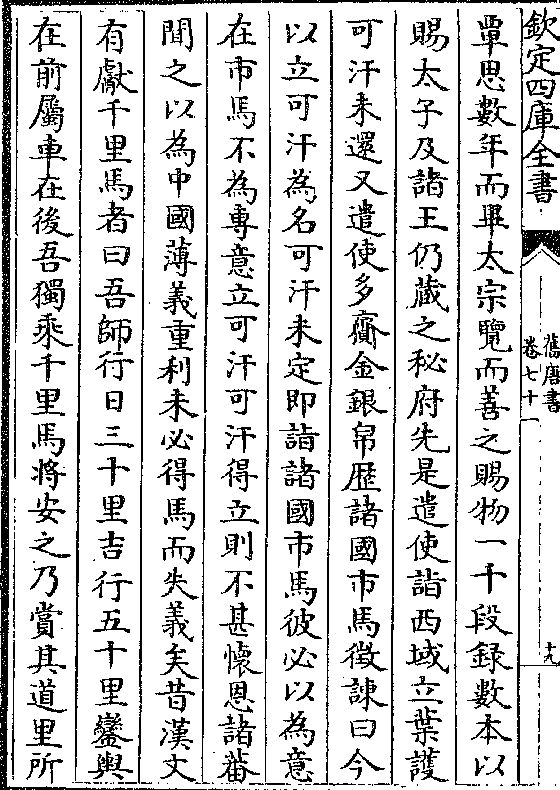 欽定四庫全書
舊唐書
卷七十
十九
覃思數年而畢太宗覽而善之賜物一千段録數本以
賜太子及諸王仍藏之秘府先是遣使詣西域立葉護
可汗未還又遣使多齎金銀帛歴諸國市馬徵諫曰今
以立可汗為名可汗未定即詣諸國市馬彼必以為意
在市馬不為專意立可汗可汗得立則不甚懷恩諸蕃
聞之以為中國薄義重利未必得馬而失義矣昔漢文
有獻千里馬者曰吾師行日三十里吉行五十里鑾輿
在前屬車在後吾獨乘千里馬將安之乃賞其道里所